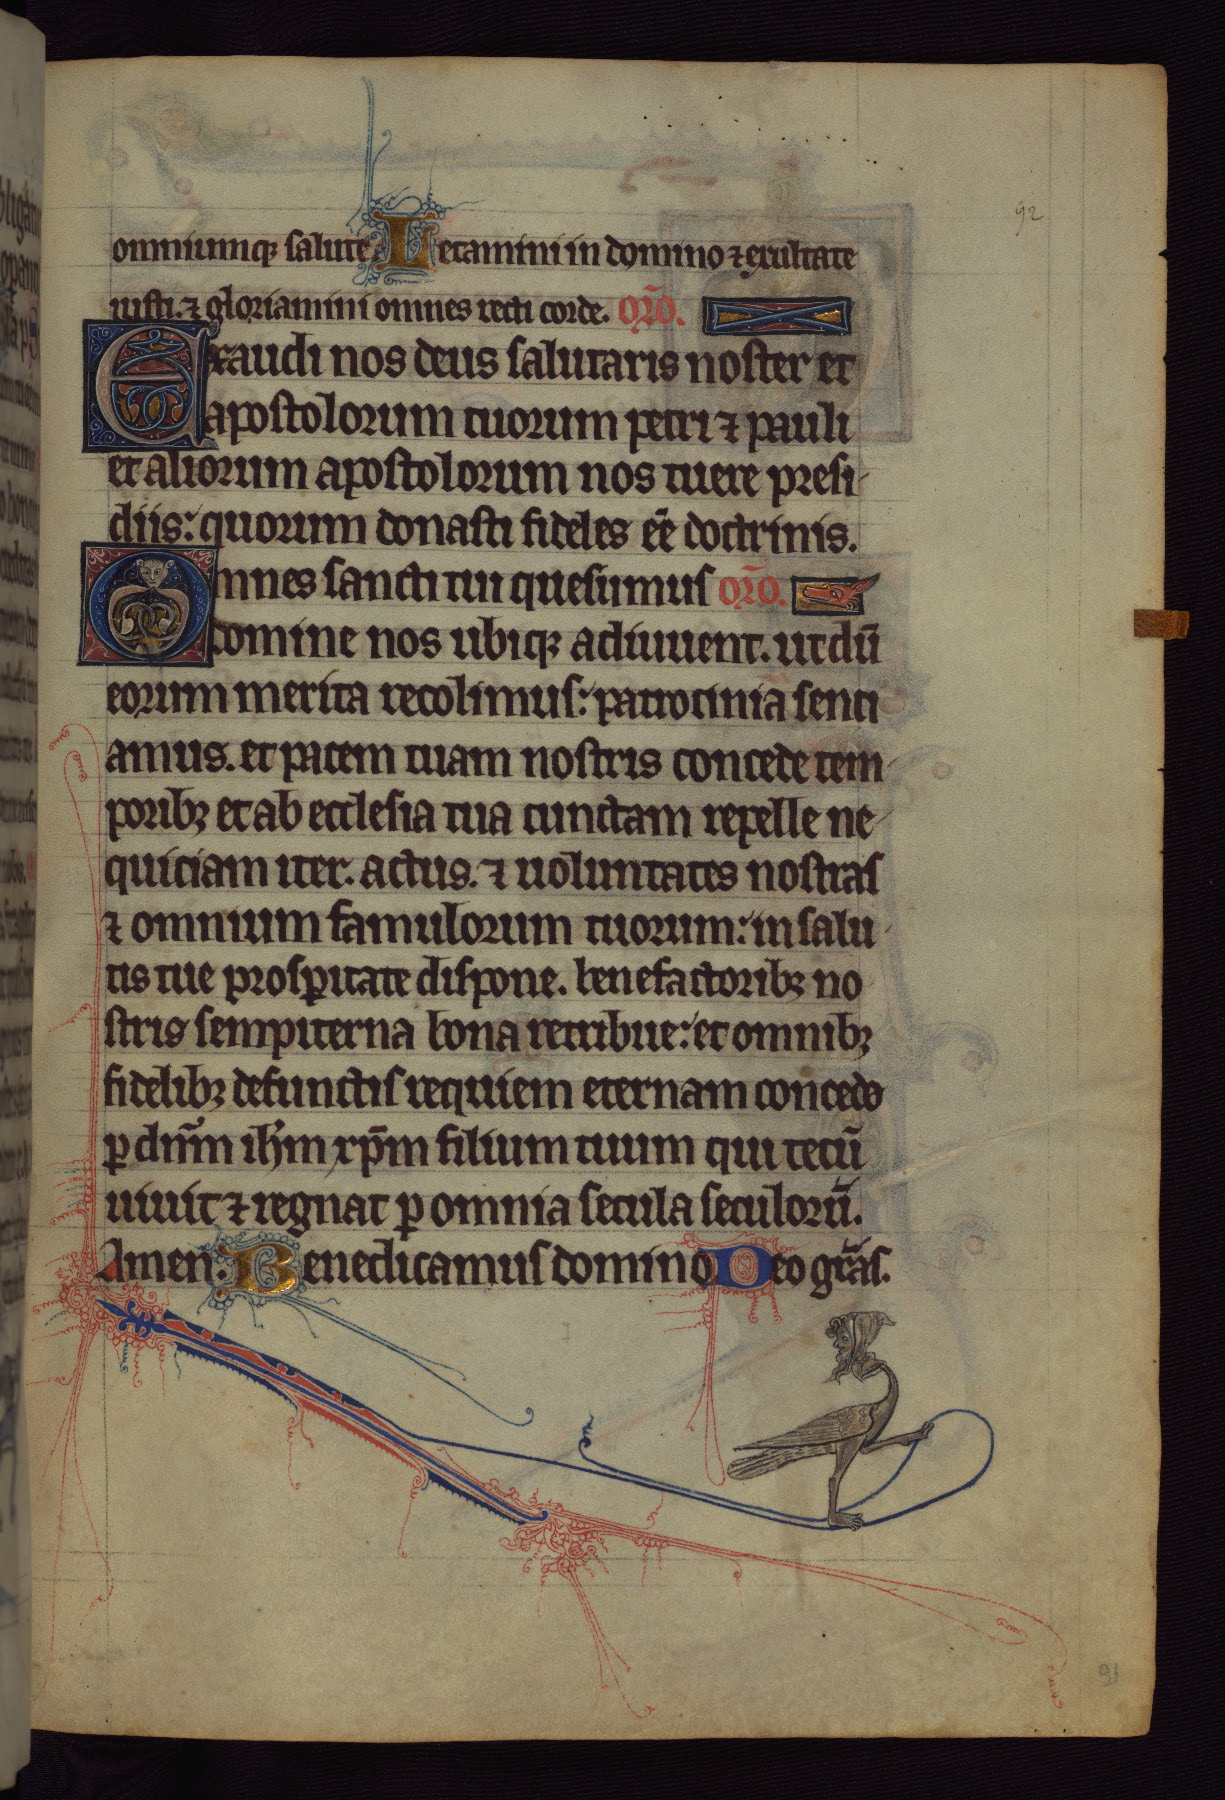 92
omniumq; salute. Letamini in domino ⁊ exultate
iusti. ⁊ gloriamini omnes recti corde. or̄o.
Exaudi nos deus salutaris noster et
apostolorum tuorum petri ⁊ pauli
et aliorum apostolorum nos tuere presi-
diis: quorum donasti fideles eē doctrinis.
Omnes sancti tui quesumus or̄o.
domine nos ubiq; adiuuent. ut dū
eorum merita recolimus: patrocinia senti
amus. et pacem tuam nostris concede tem-
porib; et ab ecclesia tua cunctam repelle ne-
quiciam iter. actus. ⁊ uoluntates nostras
⁊ omnium famulorum tuorum: in salu-
tis tue prosp̱itate dispone. benefactorib; no
stris sempiterna bona retribue: et omnib;
fidelib; defunctis requiem eternam concede
p̱ dn̄m ih̄m xp̄m filium tuum qui tecū
uiuit ⁊ regnat p̱ omnia secula seculorū.
Amen. Benedicamus domino Deo gr̄as.
91